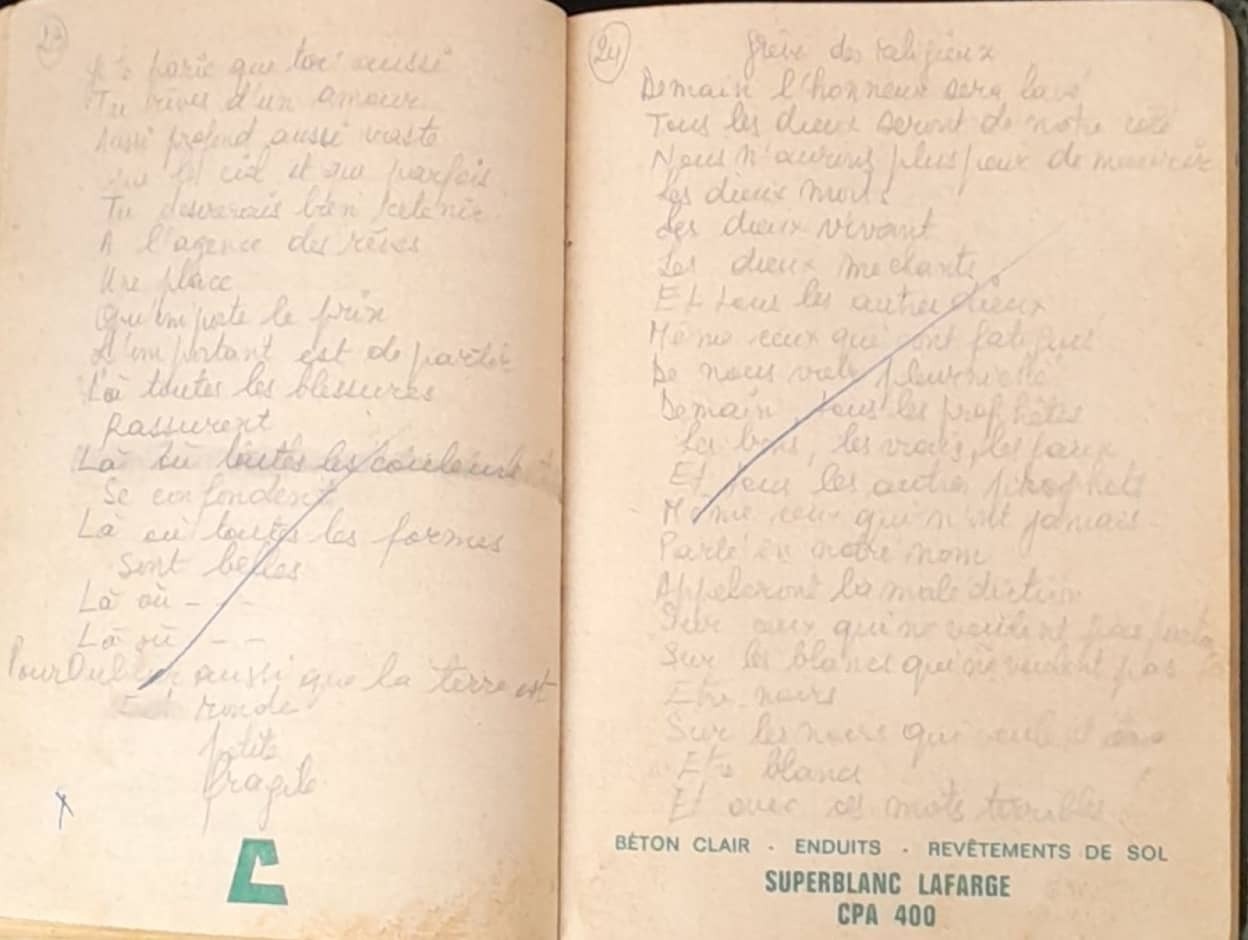 23
Je parie que toi aussi
Tu rêves d'un amour
Aussi profond aussi vaste
Que le ciel et que parfois
Tu desirerais bien retenir
A l'agence des rêves
Une place
Qu'importe le prix
L'important est de partir
Là toutes les blessures
Rassurent
Là où toutes les couleurs
Se confondent
Là où toutes les formes
Sont belles
Là où - - -
Là où - - -
Pour Oublier aussi que la terre est
ronde
petite
fragile
X
24
Grève des religieux
Demain l'honneur sera lavé
Tous les dieux seront de notre coté
Nous n'aurons plus peur de mourir
Les dieux morts
Les dieux vivant
Les dieux mechants
Et tous les autres dieux
Même ceux qui sont fatigués
De nous voir pleurnicher
Demain, tous les prophètes
Les bons, les vrais, les faux
Et tous les autres prophets
Même ceux qui n'ont jamais
Parlé en notre nom
Appeleront la malediction
Sur ceux qui ne veulent pas
Sur les blancs qui ne veulent pas
Etre noirs
Sur les noirs qui veulent
Etre blancs
Et avec ces mots terribles
BÉTON CLAIR - ENDUITS - REVÊTEMENTS DE SOL
SUPERBLANC LAFARGE
CPA 400